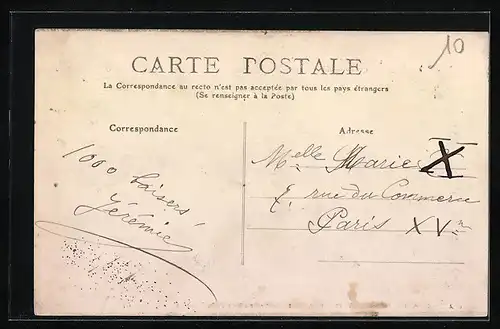 10
CARTE POSTALE
La Correspondance au recto n'est pas acceptée par tous les pays étrangers
(Se renseigner à la Poste)
Correspondance
Adresse
1000 baisers
Jérémie
Melle Marie X
7, rue du Commerce
Paris XVe